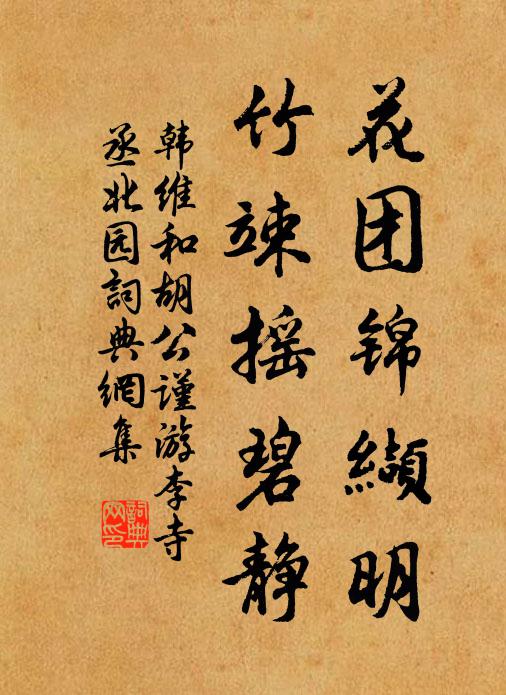 花团锦缬明
竹竦摇碧静
韩维和胡公谨游李寺
丞北园詞典網集
詞典
网印